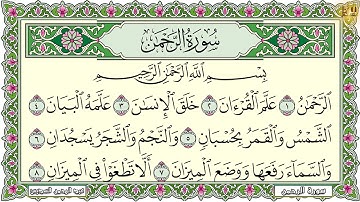 سُورَةُ الرَّحْمَٰن
بِسْمِ اللَّهِ الرَّحْمَٰنِ الرَّحِيمِ
الرَّحْمَٰنُ ١ عَلَّمَ الْقُرْءَانَ ٢ خَلَقَ الْإِنسَٰنَ ٣ عَلَّمَهُ الْبَيَانَ ٤
الشَّمْسُ وَالْقَمَرُ بِحُسْبَانٍ ٥ وَالنَّجْمُ وَالشَّجَرُ يَسْجُدَانِ ٦
وَالسَّمَاءَ رَفَعَهَا وَوَضَعَ الْمِيزَانَ ٧ أَلَّا تَطْغَوْا فِي الْمِيزَانِ ٨
سورة الرحمن